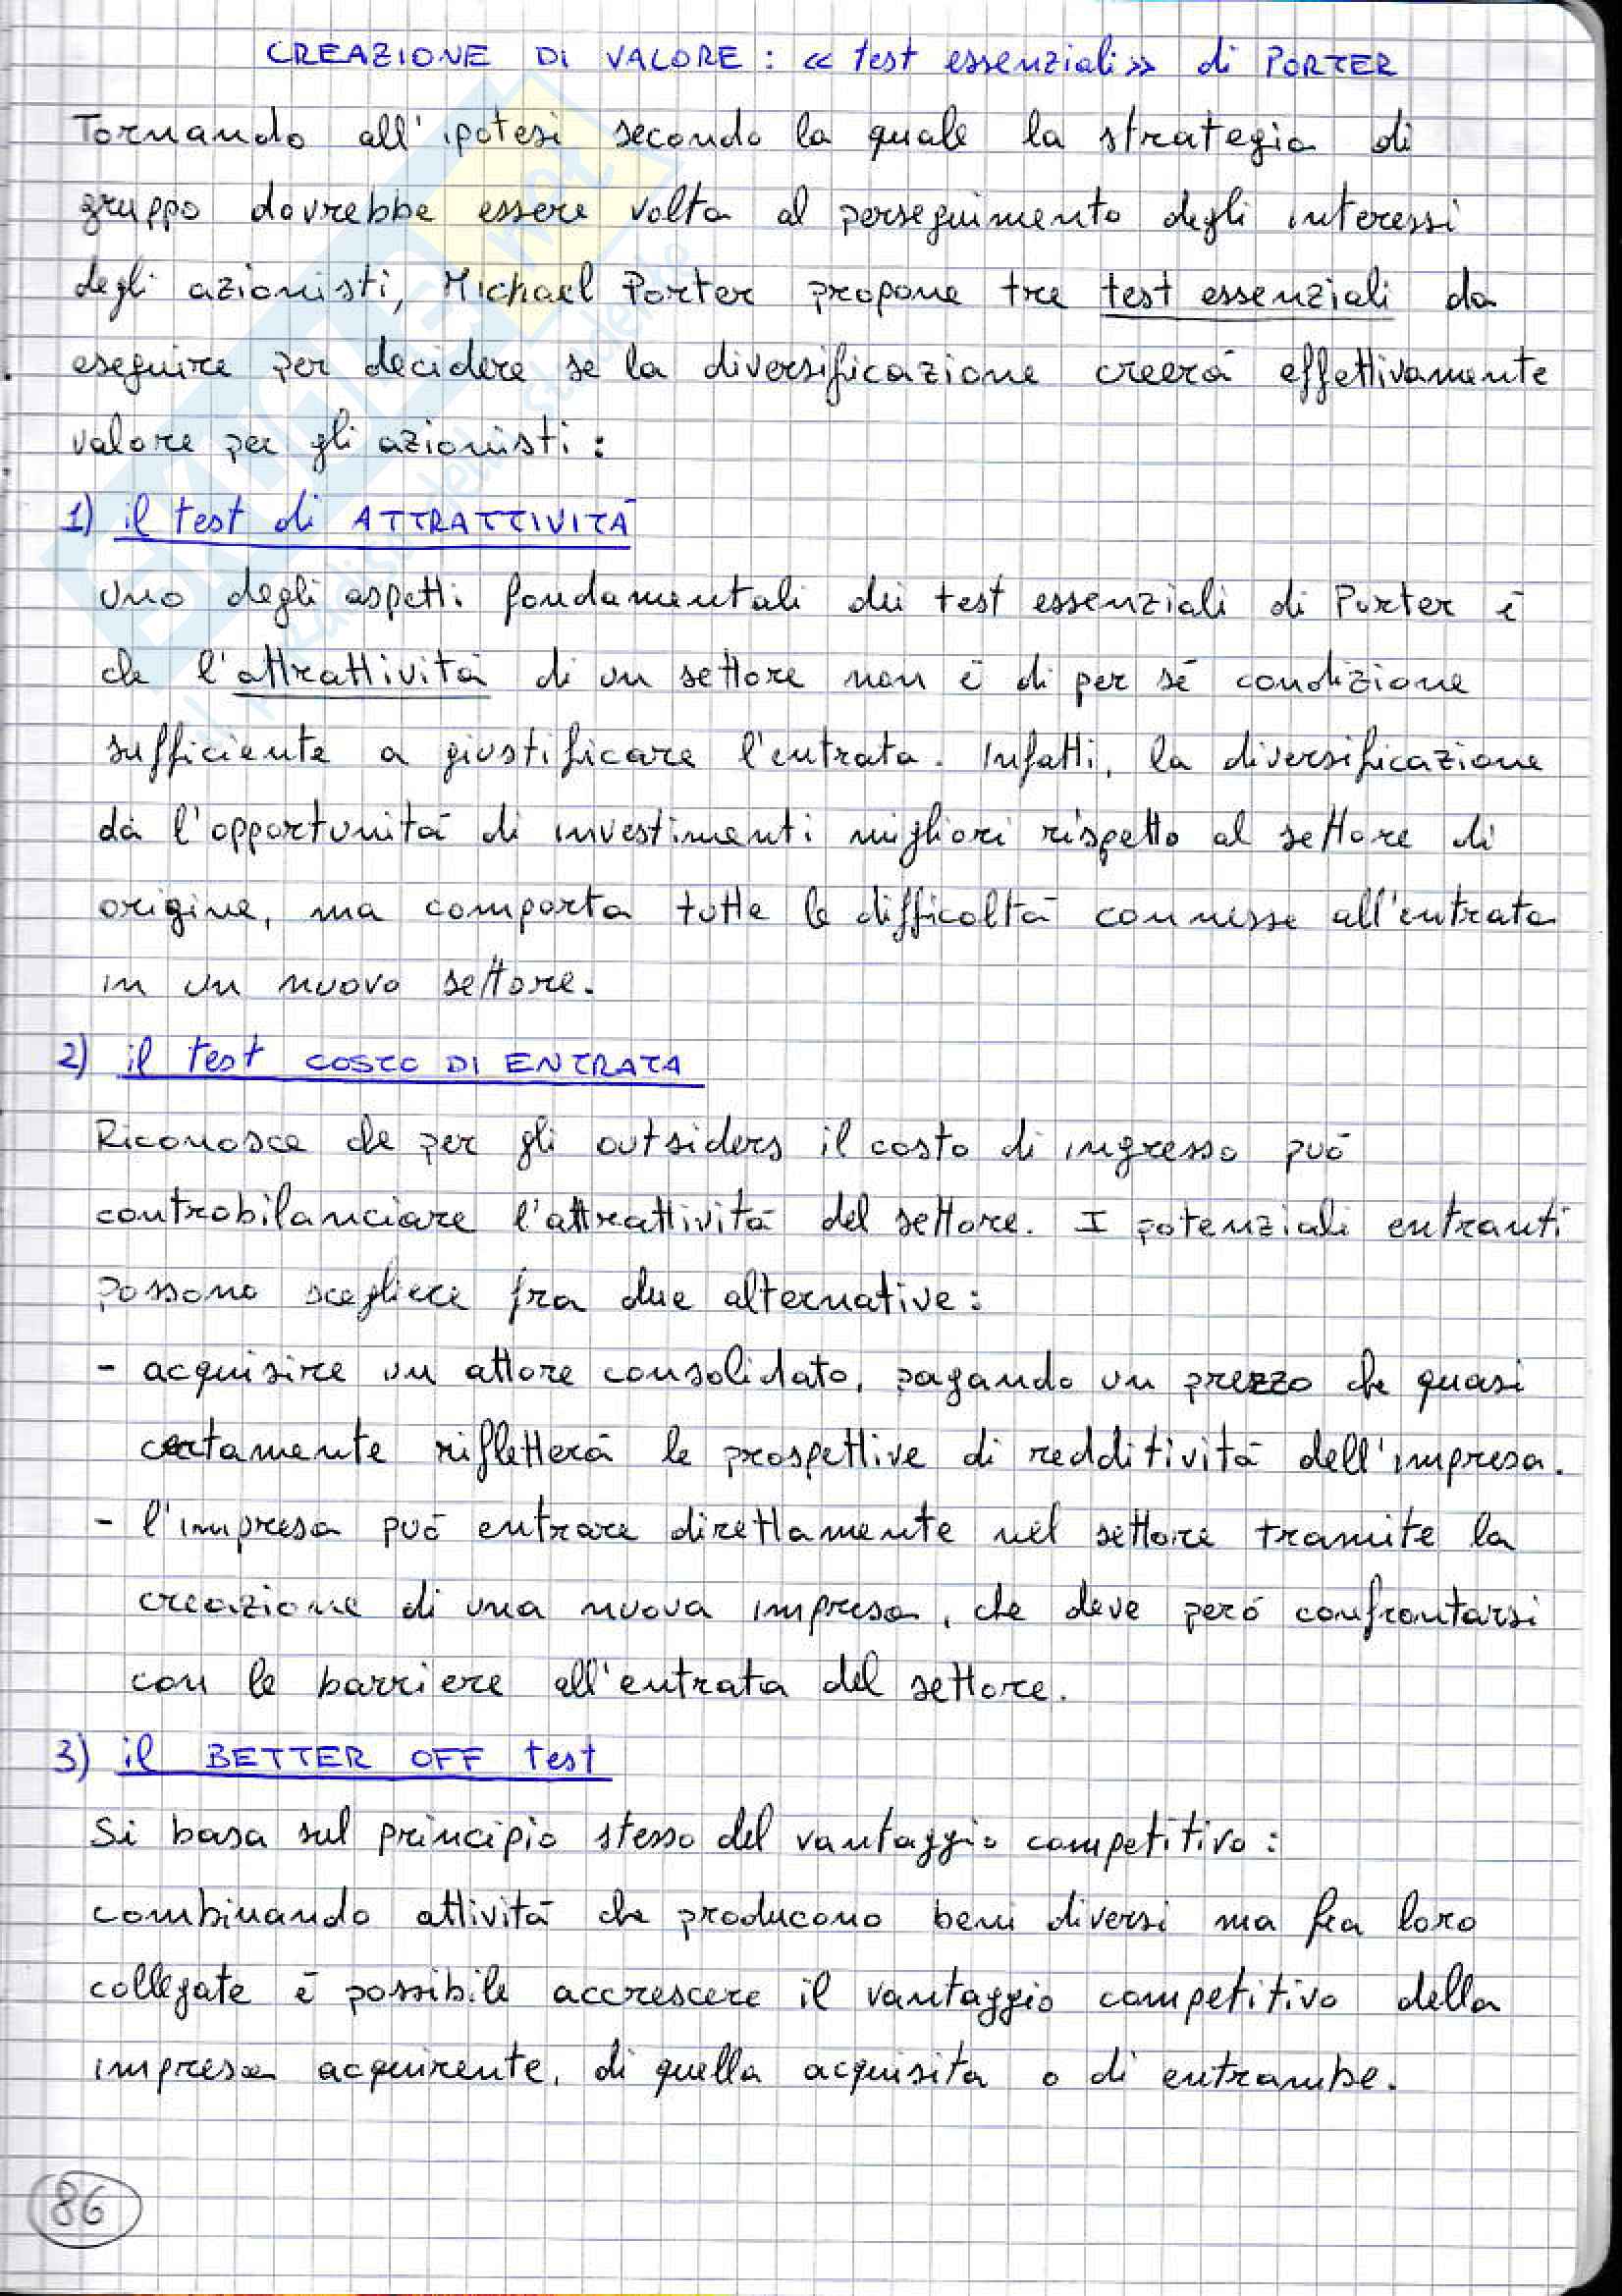 CREAZIONE DI VALORE : «test essenziali» di PORTER
Tornando all'ipotesi secondo la quale la strategia di
gruppo dovrebbe essere volta al perseguimento degli interessi
degli azionisti, Michael Porter propone tre test essenziali da
eseguire per decidere se la diversificazione creerà effettivamente
valore per gli azionisti :
1) il test di ATTRATTIVITÀ
Uno degli aspetti fondamentali dei test essenziali di Porter è
che l'attrattività di un settore non è di per sé condizione
sufficiente a giustificare l'entrata. Infatti, la diversificazione
dà l'opportunità di investimenti migliori rispetto al settore di
origine, ma comporta tutte le difficoltà connesse all'entrata
in un nuovo settore.
2) il test COSTO DI ENTRATA
Riconosce che per gli outsiders il costo di ingresso può
controbilanciare l'attrattività del settore. I potenziali entranti
possono scegliere fra due alternative :
- acquisire un attore consolidato, pagando un prezzo che quasi
certamente rifletterà le prospettive di redditività dell'impresa.
- l'impresa può entrare direttamente nel settore tramite la
creazione di una nuova impresa, che deve però confrontarsi
con le barriere all'entrata del settore.
3) il BETTER OFF test
Si basa sul principio stesso del vantaggio competitivo :
combinando attività che producono beni diversi ma fra loro
collegate è possibile accrescere il vantaggio competitivo della
impresa acquirente, di quella acquisita o di entrambe.
86